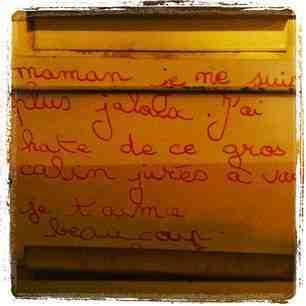 maman je ne suis
plus jalola. J'ai
hate de ce gros
calin jures a
je t'aime
beaucoup